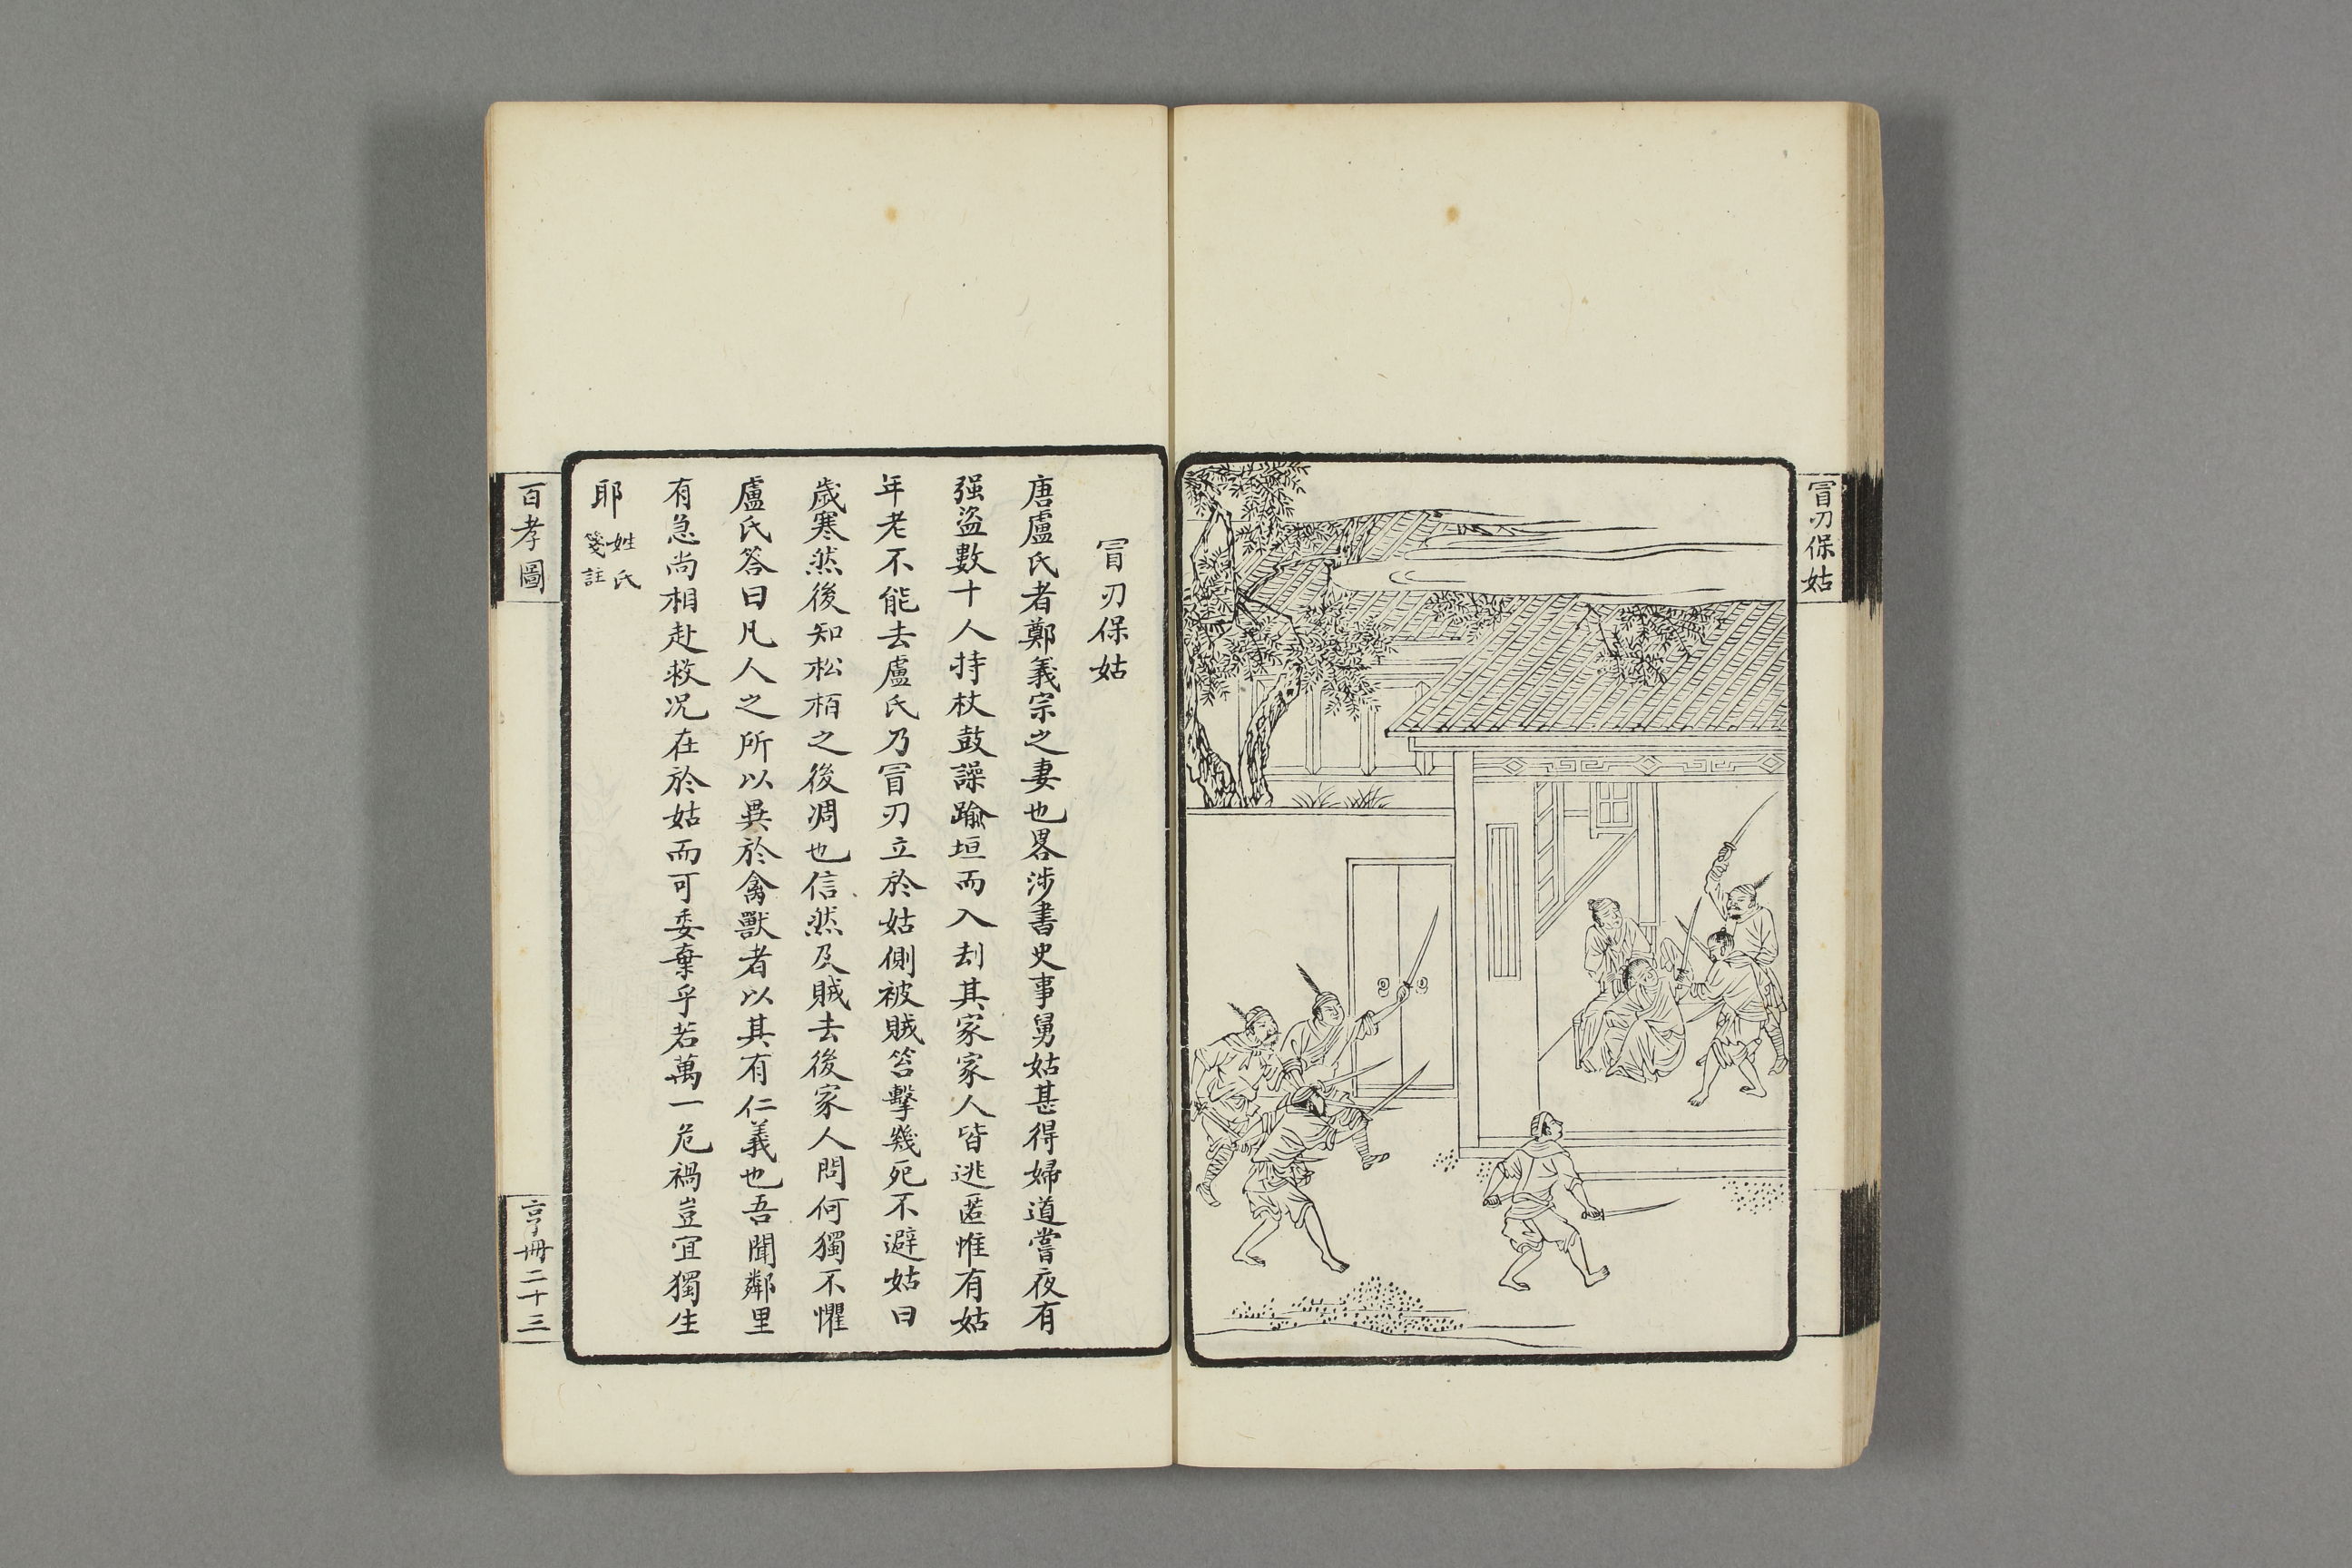 冒刃保姑
冒刃保姑
唐盧氏者鄭義宗之妻也畧涉書史事舅姑甚得婦道嘗夜有
强盜數十人持杖鼓譟踰垣而入刦其家家人皆逃匿惟有姑
年老不能去盧氏乃冒刃立於姑側被賊笞擊幾死不避姑曰
歲寒然後知松栢之後凋也信然及賊去後家人問何獨不懼
盧氏答曰凡人之所以異於禽獸者以其有仁義也吾聞鄰里
有急尚相赴救况在於姑而可委棄乎若萬一危禍豈宜獨生
耶姓氏
箋註
百孝圖
亨冊二十三